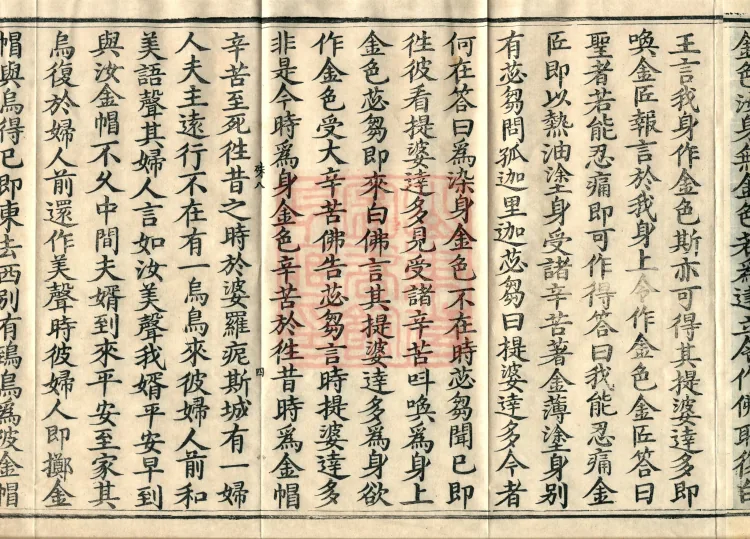 王言我身作金色斯亦可得其提婆達多即
喚金匠報言於我身上令作金色金匠答曰
聖者若能忍痛即可作得答曰我能忍痛金
匠即以熱油塗身受諸辛苦著金薄塗身別
有苾芻問孤迦里迦苾芻曰提婆達多今者
何在答曰為染身金色不在時苾芻聞已即
徃彼看提婆達多見受諸辛苦呌喚為身上
金色苾芻即來白佛言其提婆達多為身欲
作金色受大辛苦佛告苾芻言時提婆達多
非是今時為身金色辛苦於徃昔時為金帽
辛苦至死徃昔之時於婆羅痆斯城有一婦
人夫主遠行不在有一烏烏來彼婦人前和
美語聲其婦人言如汝美聲我婿平安早到
與汝金帽不久中間夫婿到來平安至家其
烏復於婦人前還作美聲時彼婦人即擲金
帽與烏得已即東去西別有鵄烏為彼金帽